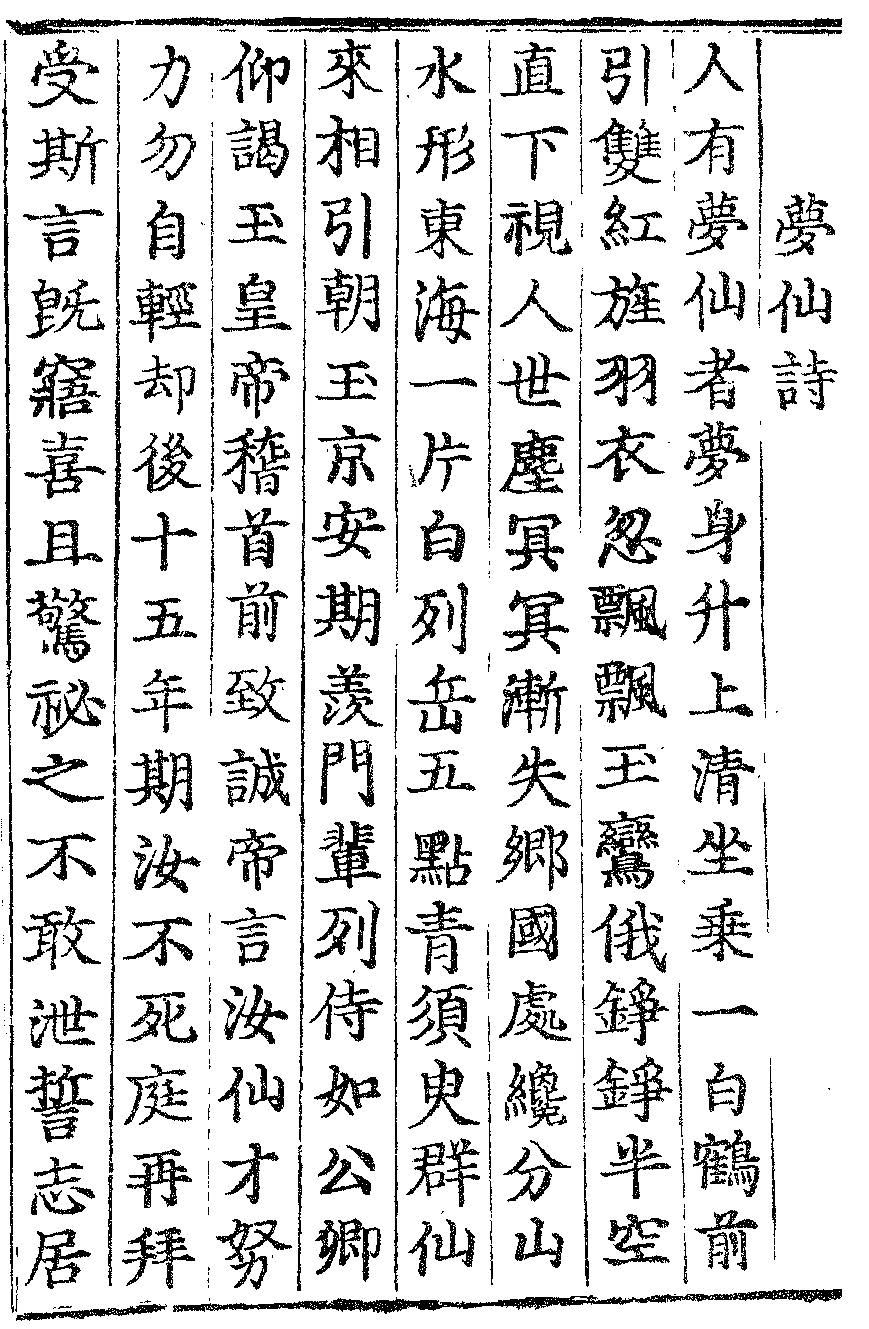 夢仙詩
人有夢仙者夢身升上清坐乗一白鶴前
引雙紅旌羽衣忽飄飄玉鸞俄錚錚半空
直下視人世塵冥冥漸失鄉國處纔分山
水形東海一片白列岳五點青須臾群仙
來相引朝玉京安期羨門輩列侍如公卿
仰謁玉皇帝稽首前致誠帝言汝仙才努
力勿自輕却後十五年期汝不死庭再拜
受斯言既寤喜且驚祕之不敢泄誓志居